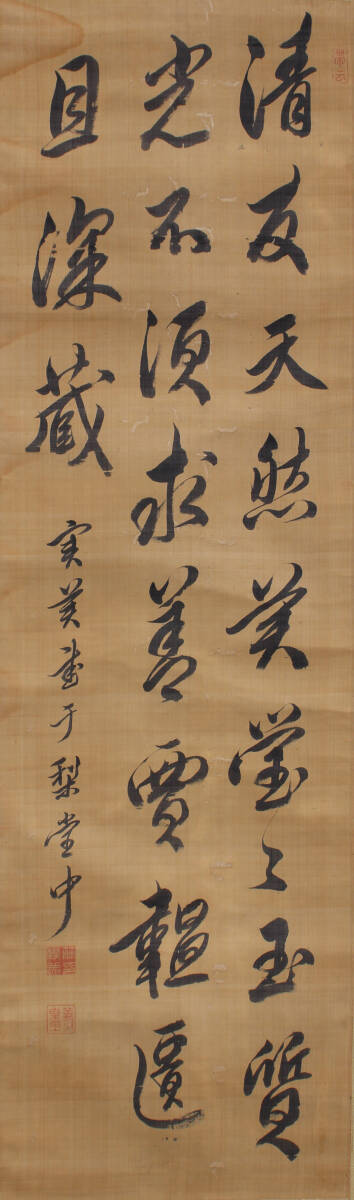 清友天然美瑩〻玉質
光不須求善賈韞匵
且深藏
實美書于梨堂中